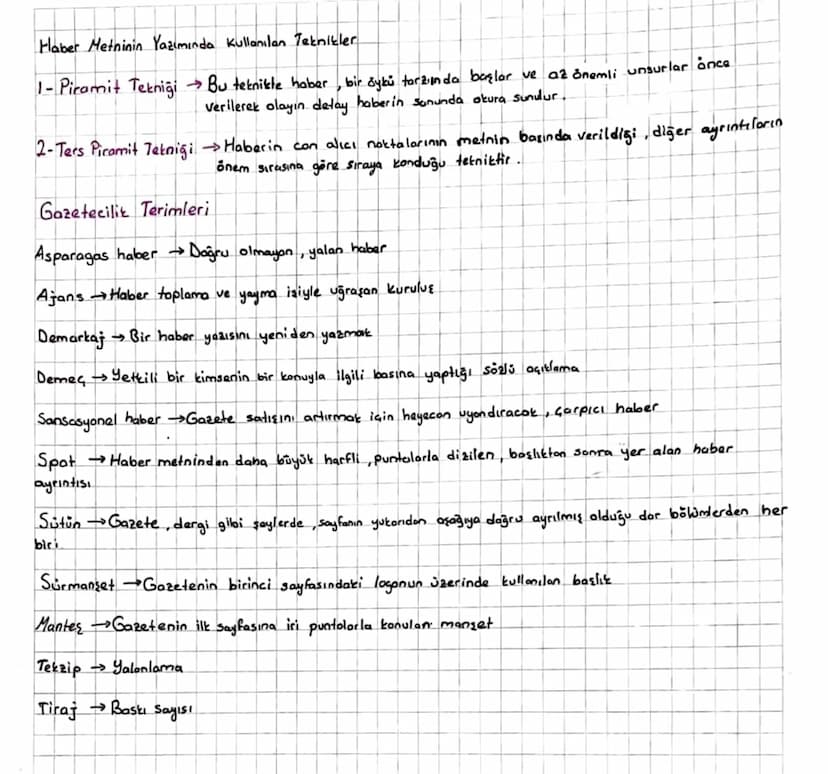 Haber Metninin Yazımında Kullanılan Teknikler
1- Piramit Tekniği → Bu teknikle haber, bir öykü tarzında başlar ve az önemli unsurlar önce
verilerek olayın detay haberin sonunda okura sunulur.
2- Ters Piramit Tekniği → Haberin can alıcı noktalarının metnin başında verildiği, diğer ayrıntıların
önem sırasına göre sıraya konduğu tekniktir.
Gazetecilik Terimleri
Asparagas haber → Doğru olmayan, yalan haber
Ajans → Haber toplama ve yayma işiyle uğraşan kuruluş
Demarkaj → Bir haber yazısını yeniden yazmak
Demeç → Yetkili bir kimsenin bir konuyla ilgili basına yaptığı sözlü açıklama
Sansasyonel haber → Gazete satışını artırmak için heyecan uyandıracak, çarpıcı haber
Spot → Haber metninden daha büyük harfli, puntolarla dizilen, başlıktan sonra yer alan haber
ayrıntısı
Sütün → Gazete, dergi gibi şeylerde, sayfanın yukarıdan aşağıya doğru ayrılmış olduğu dar bölümlerden her
biri.
Sürmanşet → Gazetenin birinci sayfasındaki logonun üzerinde kullanılan başlık
Manteş → Gazetenin ilk sayfasına iri puntolarla konulan manşet
Tekzip → Yalanlama
Tiraj → Baskı sayısı